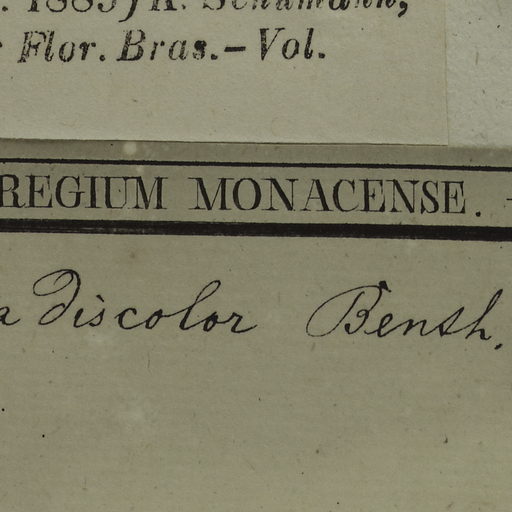 1889) K. Schumann,
Flor. Bras.—Vol.
REGIUM MONACENSE.
a discolor Benth.